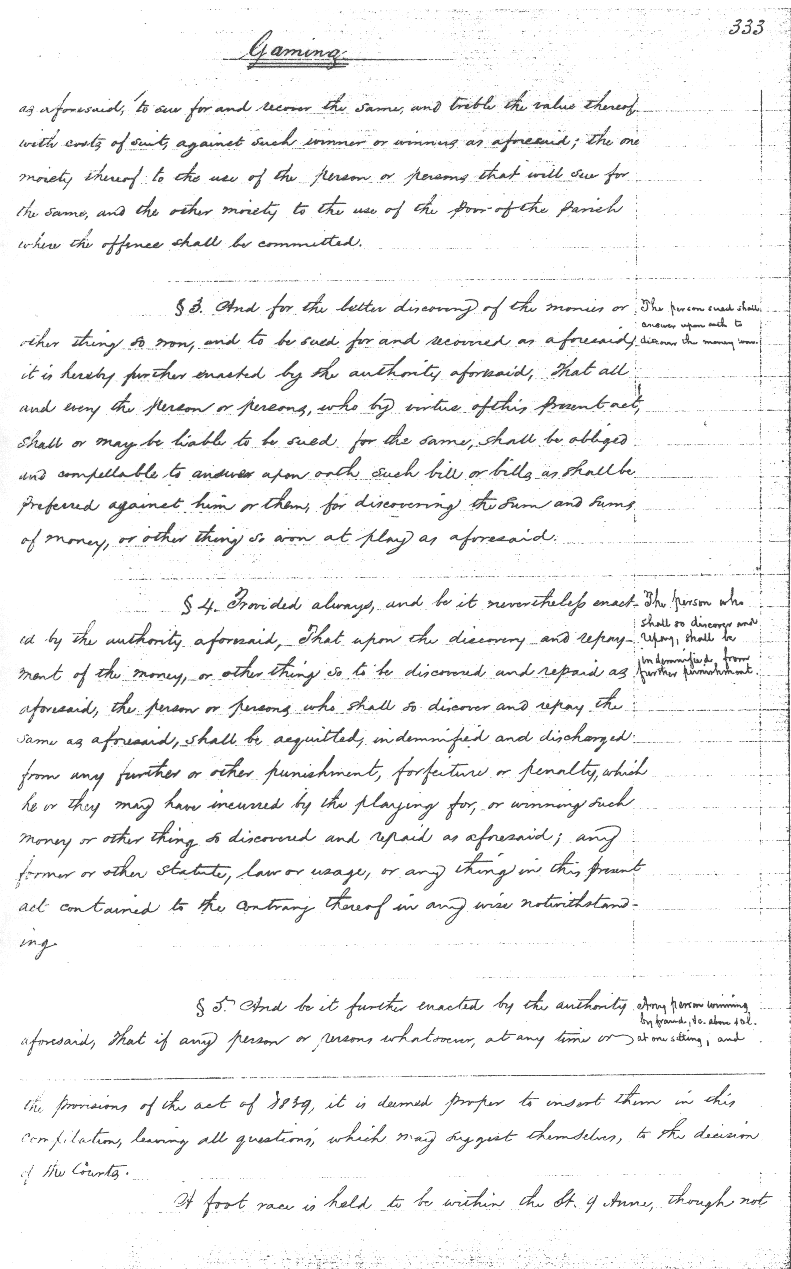 333
Gaming.
as aforesaid, to sue for and recover the same, and treble the value thereof
with costs of suit, against such winner or winners as aforesaid; the one
moiety thereof to the use of the person or persons that will sue for
the same, and the other moiety to the use of the Poor of the Parish
where the offence shall be committed.
§ 3. And for the better discovery of the monies or
other thing so won, and to be sued for and recovered as aforesaid,
it is hereby further enacted by the authority aforesaid, That all
and every the person or persons, who by virtue of this present act,
shall or may be liable to be sued for the same, shall be obliged
and compellable to answer upon oath such bill or bills as shall be
preferred against him or them, for discovering the sum and sums
of money, or other thing so won at play as aforesaid.
The person sued shall
answer upon oath to
discover the money won.
§ 4. Provided always, and be it nevertheless enact-
ed by the authority aforesaid, That upon the discovery and repay-
ment of the money, or other thing so to be discovered and repaid as
aforesaid, the person or persons who shall so discover and repay the
same as aforesaid, shall be acquitted, indemnified and discharged
from any further or other punishment, forfeiture or penalty, which
he or they may have incurred by the playing for, or winning such
money or other thing so discovered and repaid as aforesaid; any
former or other statute, law or usage, or any thing in this present
act contained to the contrary thereof in any wise notwithstand-
ing.
The person who
shall so discover and
repay, shall be
indemnified from
further punishment.
§ 5. And be it further enacted by the authority
aforesaid, That if any person or persons whatsoever, at any time or
Any person winning
by fraud, &c. above £10.
at one sitting, and
the provisions of the act of 1839, it is deemed proper to insert them in this
compilation, leaving all questions, which may suggest themselves, to the decision
of the Courts.
A foot race is held to be within the St. 9 Anne, though not